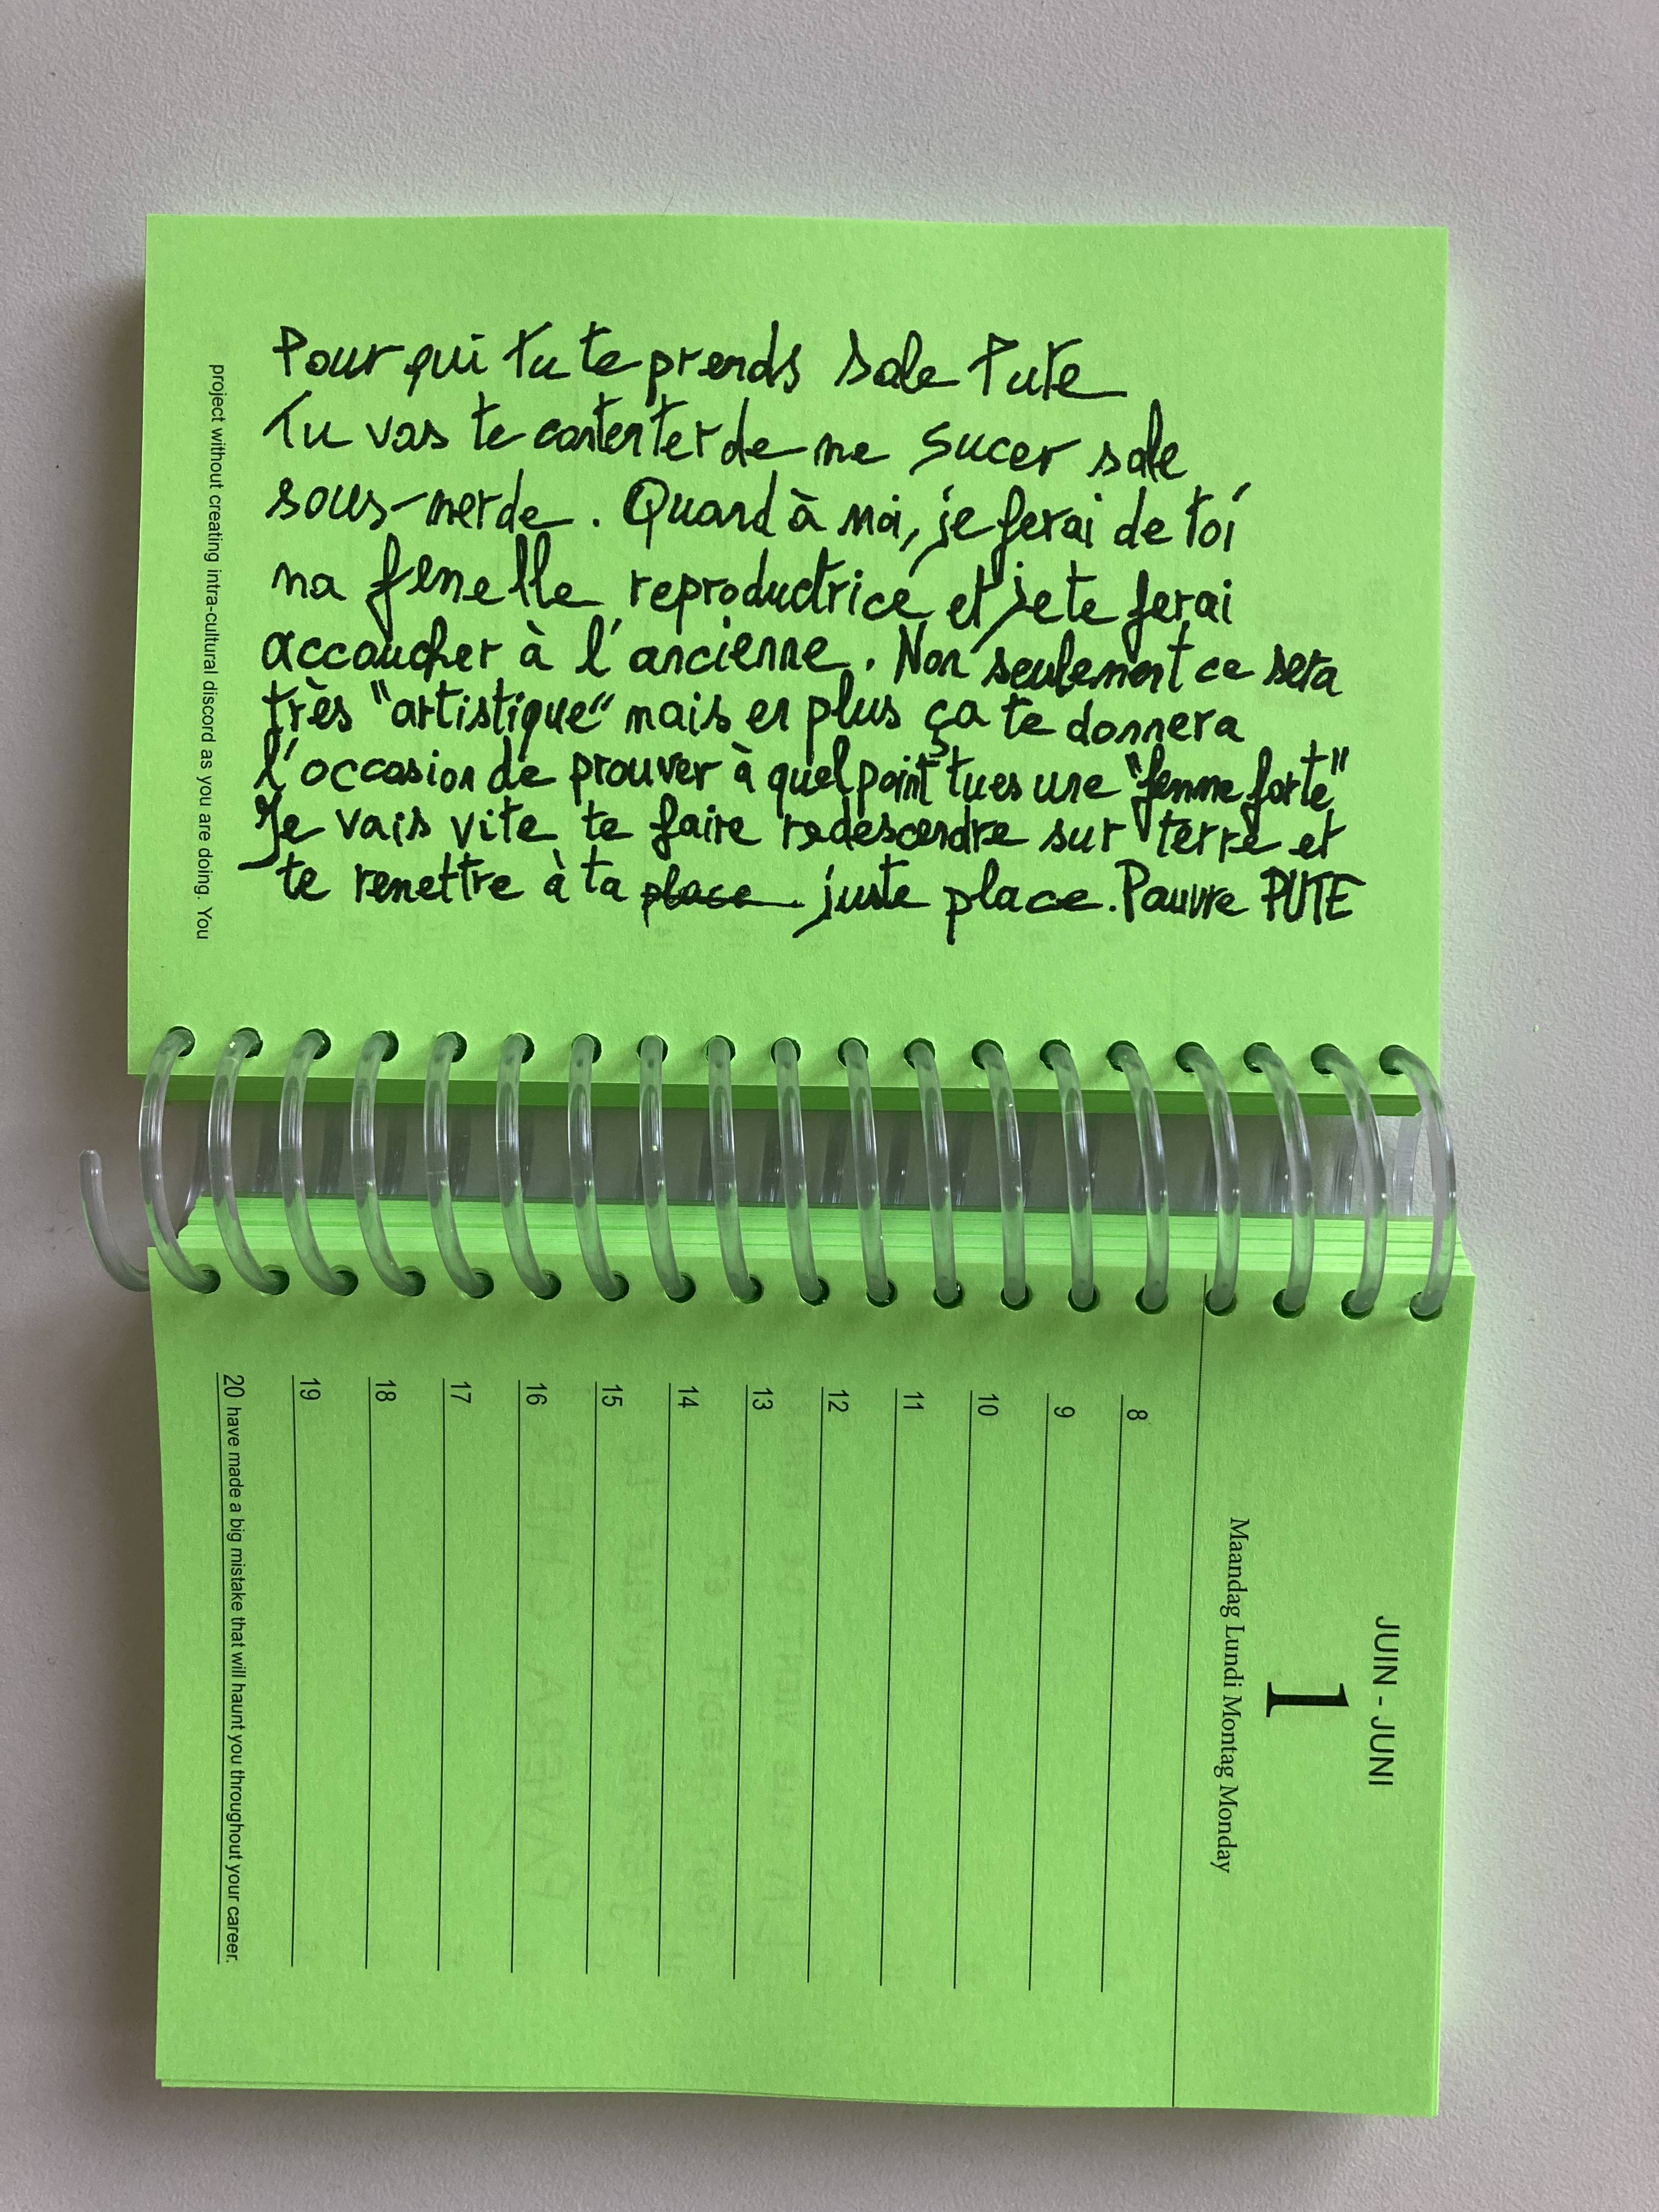 Pour qui tu te prends sale Pute
Tu vas te contenter de me sucer sale
sous-merde. Quand à moi, je ferai de toi
ma femelle reproductrice et je te ferai
accoucher à l'ancienne. Non seulement ce sera
très "artistique" mais en plus ça te donnera
l'occasion de prouver à quel point tu es une "femme forte"
Je vais vite te faire redescendre sur terre et
te remettre à ta place juste place. Pauvre PUTE
project without creating intra-cultural discord as you are doing. You
JUIN - JUNI
1
Maandag Lundi Montag Monday
8
9
10
11
12
13
14
15
16
17
18
19
20 have made a big mistake that will haunt you throughout your career.